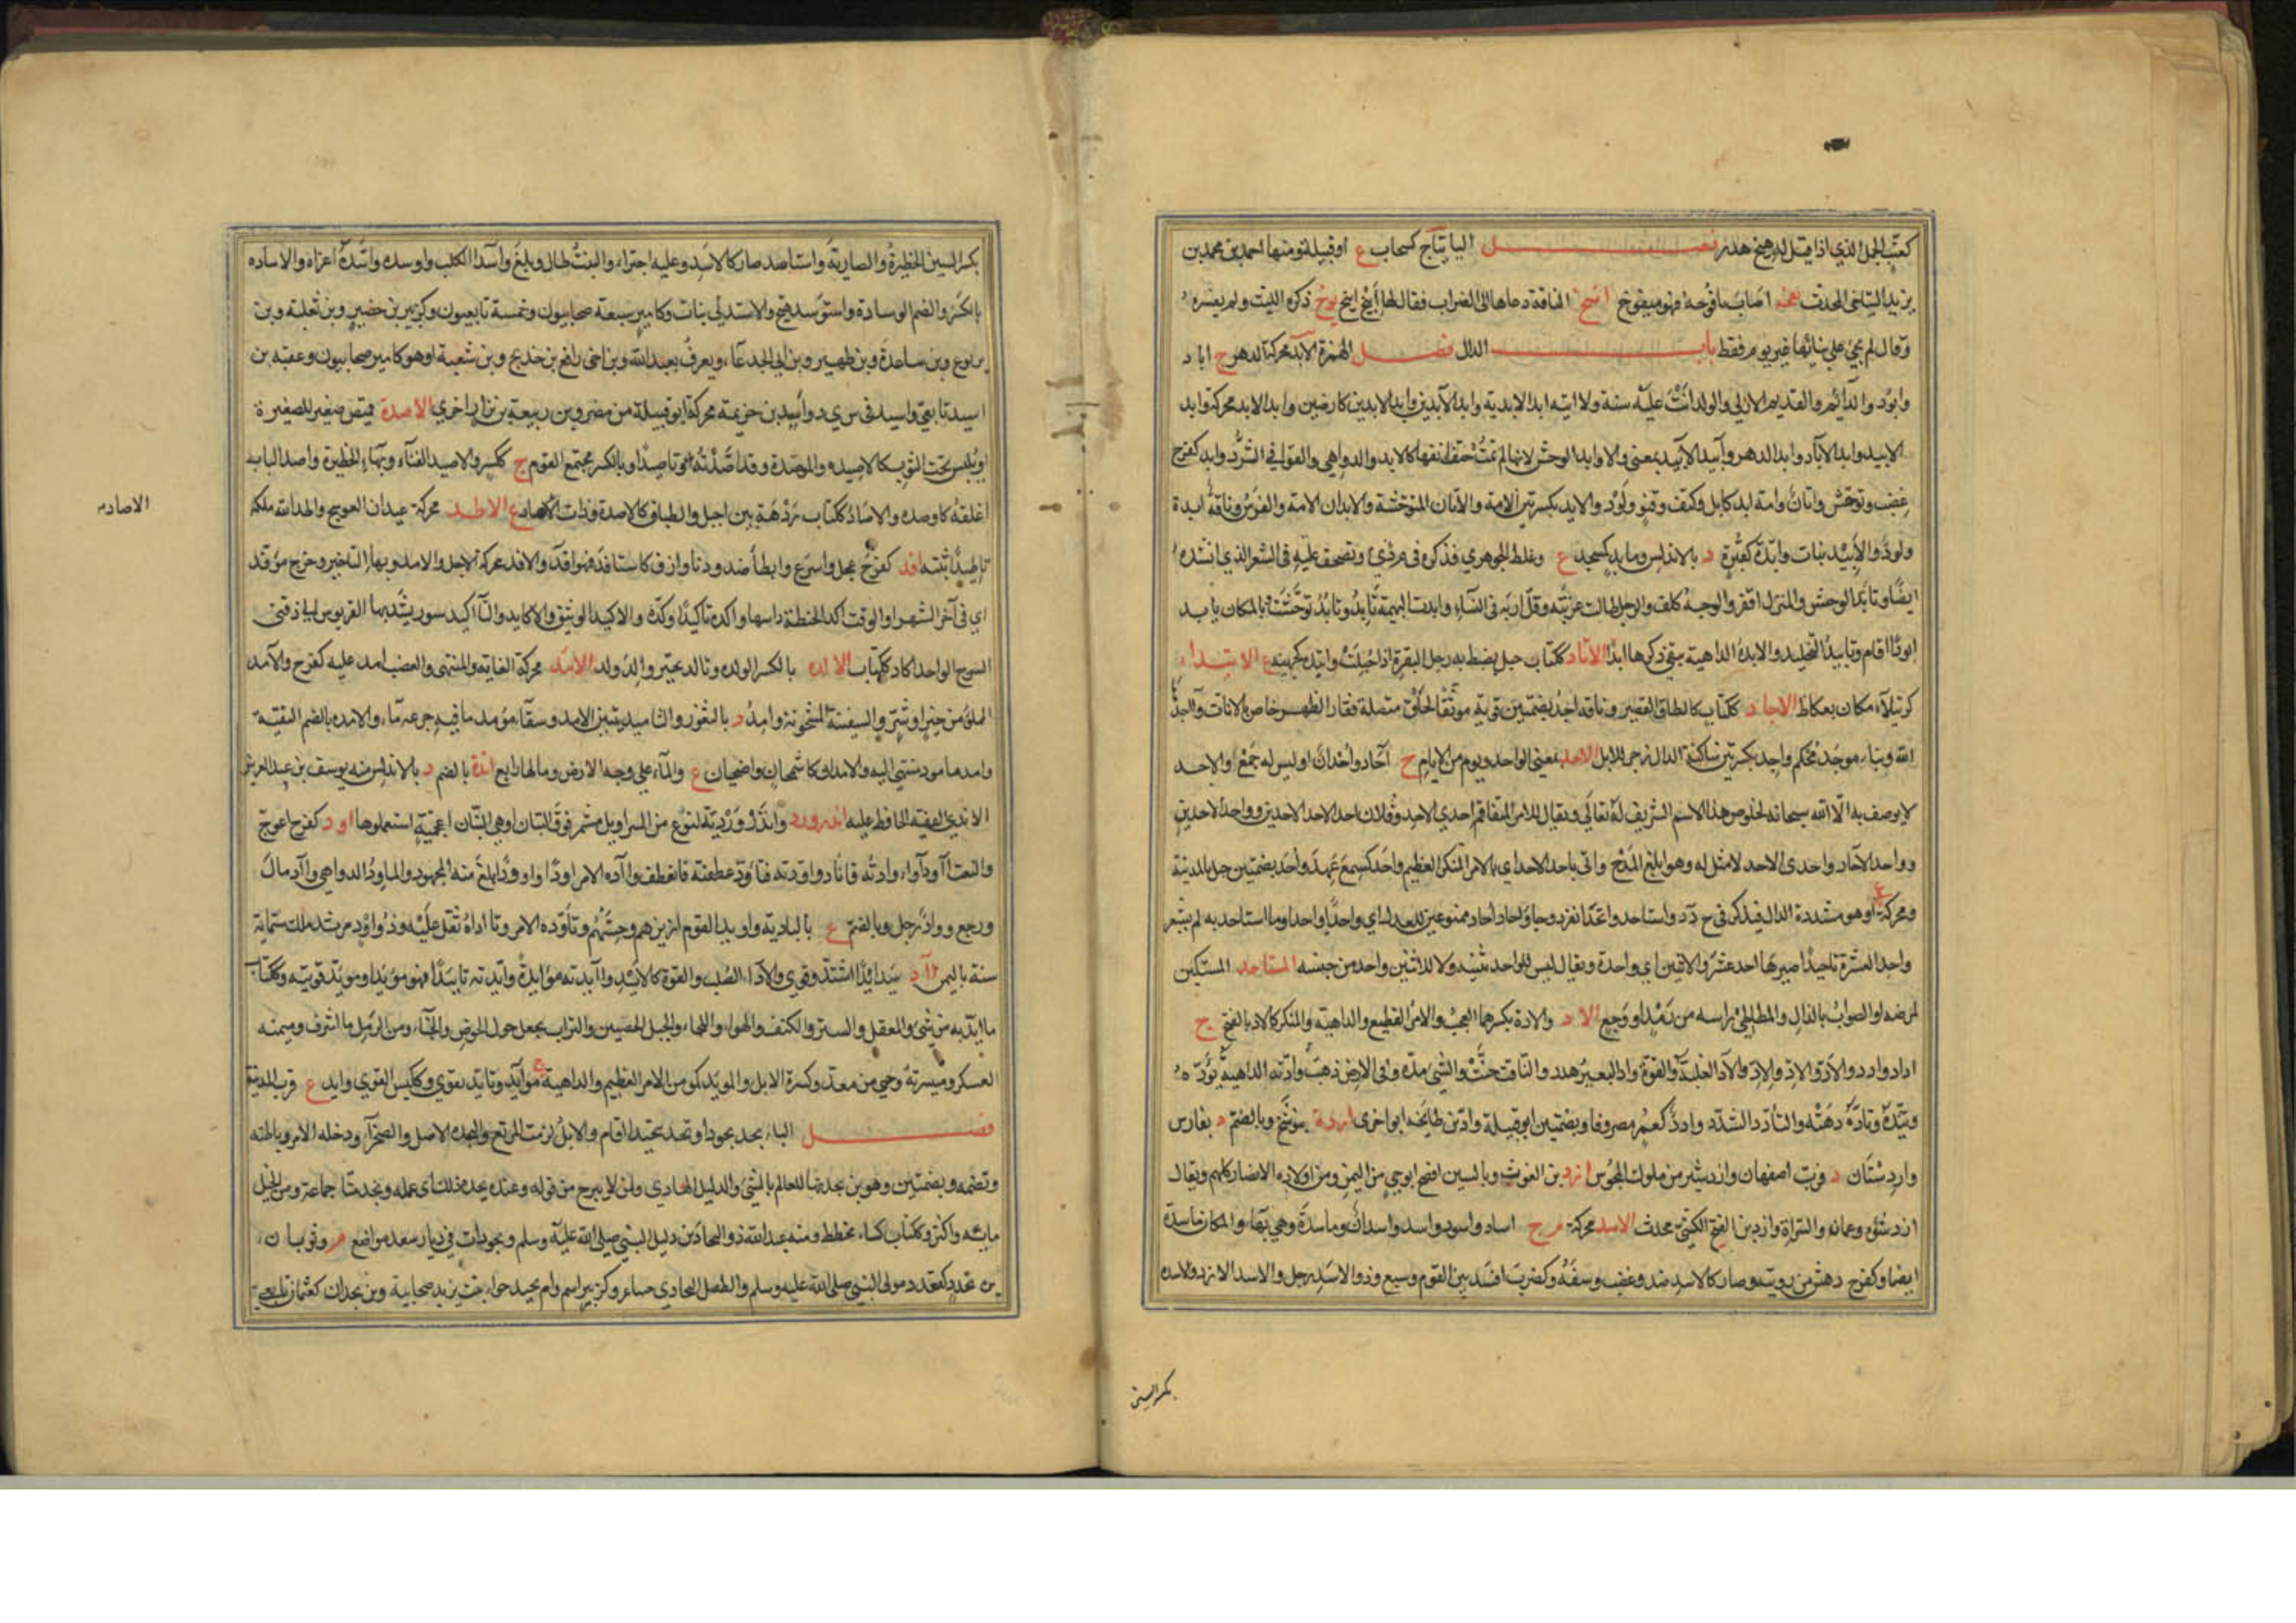 كعتب الجمل الذي اذا قيل له هيخ هدر فصل اليا يتاج كسحاب ع او قبيلة ومنها احمد بن محمد بن
يزيد المحدث يفخه اصاب يافوخه فهو ميفوخ الناقة دعاها الى الضراب فقال لها اينخ اينخ يوخ ذكره الليث ولم يفسره
وقال لم يجئ على بنائها غير يوم فقط باب الدال فصل الهمزة الابد محركة الدهر ج اباد
وابود والدائم والقديم الازلي والولد اتت عليه سنة ولا اتيه ابد الابدية وابد الآبدين وابد الابدين كارضين وابد الابد محركة وابد
الابيد وابد الآباد وابد الدهر وابيد الابيد بمعنى والاوابد الوحش لانها لم تمت حتف انفها كالابد والدواهي والقوافي الشرد وابد كفرح
غضب وتوحش واتان وامة ابد كابل وكتف وقنو ولود والابد بكسرتين الامة والاتان المتوحشة والابدان الامة والفرس وناقة ابدة
ولود والابيد نبات وابدة كقبرة د بالاندلس ومابد كمسجد ع وغلط الجوهري فذكره في م ي د وتصحف عليه في الشعر الذي انشده
ايضا وتابد الوحش والمنزل اقفر والوجه كلف والرجل طالت عزبته وقل اربه في النساء وابدت البهيمة تابد وتابد توحشت بالمكان يابد
ابودا اقام وتابيدا التخليد والابدة الداهية يبقى ذكرها ابدا الاتاد ككتاب حبل يضبط به رجل البقرة اذا حلبت واتيد كجهينة ع الاثيداء
كرتيلاء مكان بعكاظ الاجاد ككتاب كالطاق القصير وناقة اجد بضمتين قوية موثقة الخلق متصلة فقار الظهر خاص بالاناث وآجدها
الله وبناء موجد محكم واجد بكسرتين ساكنة الدال زجر للابل الاحد بمعنى الواحد ويوم من الايام ج آحاد واحدان او ليس له جمع او الاحد
لا يوصف به الا الله سبحانه لخلوص هذا الاسم الشريف له تعالى ويقال للامر المتفاقم احدى الاحد وفلان احد الاحد الاحدين وواحد الاحدين
وواحد الآحاد واحدى الاحد لا مثل له وهو ابلغ المدح واتى باحد الاحد اي بالامر المنكر العظيم واحد كسمع عهد واحد بضمتين جبل بالمدينة
ومحركة ع او هو مشددة الدال فيذكر في ح د د واستاحد واتحد انفرد وجاوا احاد احاد ممنوعين للعدل اي واحدا واحدا وما استاحد به لم يشعر
واحد العشرة تاحيدا صيرها احد عشر والاثنين اي واحدة ويقال ليس للواحد تثنية ولا للاثنين واحد من جنسه المستاخد المستكين
لمرضه او الصواب بالذال والمطاطئ راسه من رمد او وجع الاد والادة بكسرهما العجب والامر الفظيع والداهية والمنكر كالاد بالفتح ج
اداد وادد والآد الغلبة والقوة واد البعير هدر والناقة حنت والشي مده وفي الارض ذهب وادته الداهية تؤده
وتئده وتاده دهته والتادد التشدد وادد كعمر مصروفا وبضمتين ابو قبيلة واد بن طابخة ابو اخرى اردة بوشنج وبالضم د بفارس
واردستان د قرب اصفهان واردشير من ملوك المجوس ازد بن الغوث وبالسين افصح ابو حي من اليمن ومن اولاده الانصار كلهم ويقال
ازد شنوه وعمان والسراة وازد بن الفتح الكشي محدث الاسد محركة م ج اساد واسود واسد واسدان وماسدة وهي بهاء والمكان ماسدة
ايضا وكفرح دهش من رويته وصار كالاسد ضد وغضب وسفه وكضرب افسد بين القوم وسبع وذو الاسد رجل والاسد الازد والاسده
بكسر السين
بكسر السين الحظيرة والضارية واستاسد صار كالاسد وعليه اجترا والنبت طال وبلغ وآسد الكلب واوسده واسده اغراه والاساده
بالكسر والضم الوسادة واستوسد هيج والاسدي نبات وكامير سبعة صحابيون وخمسة تابعيون وكزبير بن حضير وبن ثعلبة وبن
يربوع وبن ساعدة وبن ظهير وبن ابي الجدعاء ويعرف بعبد الله وبن اخي رافع بن خديج وبن شعبة او هو كامير صحابيون وعقبة بن
اسيد تابعي واسيد في س ي د واسد بن خزيمة محركة ابو قبيلة من مضر وبن ربيعة بن نزار اخرى الاصدة قميص صغير للصغيرة
او يلبس تحت الثوب كالاصيده والموصدة وقد اصدته تاصيدا وبالكسر مجتمع القوم ج ككسر والاصيد الفناء وبهاء الحظيرة واصد الباب
اغلقه كاوصده والاصاد ككتاب ردهة بين اجبل والطباق كالاصدة وذات الاصاد ع الاطد محركة عيدان العوسج واطد الله ملكه
تاطيدا ثبته افد كفرح عجل واسرع وابطا ضد ودنا وازف كاستافد فهو افد والافد محركة الاجل والامد وبهاء التاخير وخرج موفدا
اي في آخر الشهر او الوقت اكد الحنطة داسها واكده تاكيدا وكده والاكيد الوثيق والاكايد والتآكيد سيور يشد بها القربوس الى دفتي
السرج الواحد اكاد ككتاب الالده بالكسر الولده وتالد تحير والد ولد الامد محركة الغاية والمنتهى والغضب امد عليه كفرح والآمد
المملو من خير او شر والسفينة المشحونة وامد د بالثغور والتاميد تبيين الامد وسقا مؤمد ما فيه جرعة ماء والامده بالضم البقية
وامد مامود منتهى اليه والامدان كاسحمان واضحيان ع والماء على وجه الارض وما لها رابع اندة بالضم د بالاندلس منه يوسف بن عبد العزيز
الاندي الفقيه الحافظ عليه اندرورد واندروردية لنوع من السراويل مشمر فوق التبان او هي التبان اعجمية استعملوها اود كفرح اعوج
والنعت آود واوداء وادته فاناد واودته فتاود عطفته فانعطف وآده الامر اودا واوودا بلغ منه المجهود والماود الدواهي وآد مال
ورجع وود اد رجل وبالضم ع بالبادية واويد القوم ازيزهم وحسهم وتاوده الامر وتاداه ثقل عليه وذو اود مرثد ملك ستمائة
سنة باليمن اد يئيد ايدا اشتد وقوي والآد الصلب والقوة كالايد وآيدته مؤايدة وايدته تاييدا فهو مؤيد ومؤيد قويته وككتاب
ما ايد به من شيء والمعقل والستر والكنف والهواء واللجاء والجبل الحصين والتراب يجعل حول الحوض والخباء ومن الرمل ما اشرف وميمنة
العسكر وميسرته وحي من معد وكثرة الابل والمويد كمومن الامر العظيم والداهية ج موآيد وتايد تقوى وككيس القوي وايد ع قرب المدينة
فصل الباء بجد بجودا وبجد تبجيدا اقام والابل لزمت المرتع والبجدة الاصل والصحراء ودخلة الامر وباطنه
وتضمه وبضمتين وهو بن بجدتها للعالم بالشي والدليل الهادي ولمن لا يبرح من قوله وعنده بجدة ذلك اي علمه وبجد منا جماعة ومن الخيل
مائة واكثر وككتاب كساء مخطط ومنه عبد الله ذو البجادين دليل النبي صلى الله عليه وسلم وبجودات في ديار سعد مواضع م وثوبان
بن بجدد كقعدد مولى النبي صلى الله عليه وسلم والطفيل البجادي شاعر وكزبير اسم وام بجيد حواء بنت يزيد صحابية وبن بجدان كعثمان تابعي
الاصاد